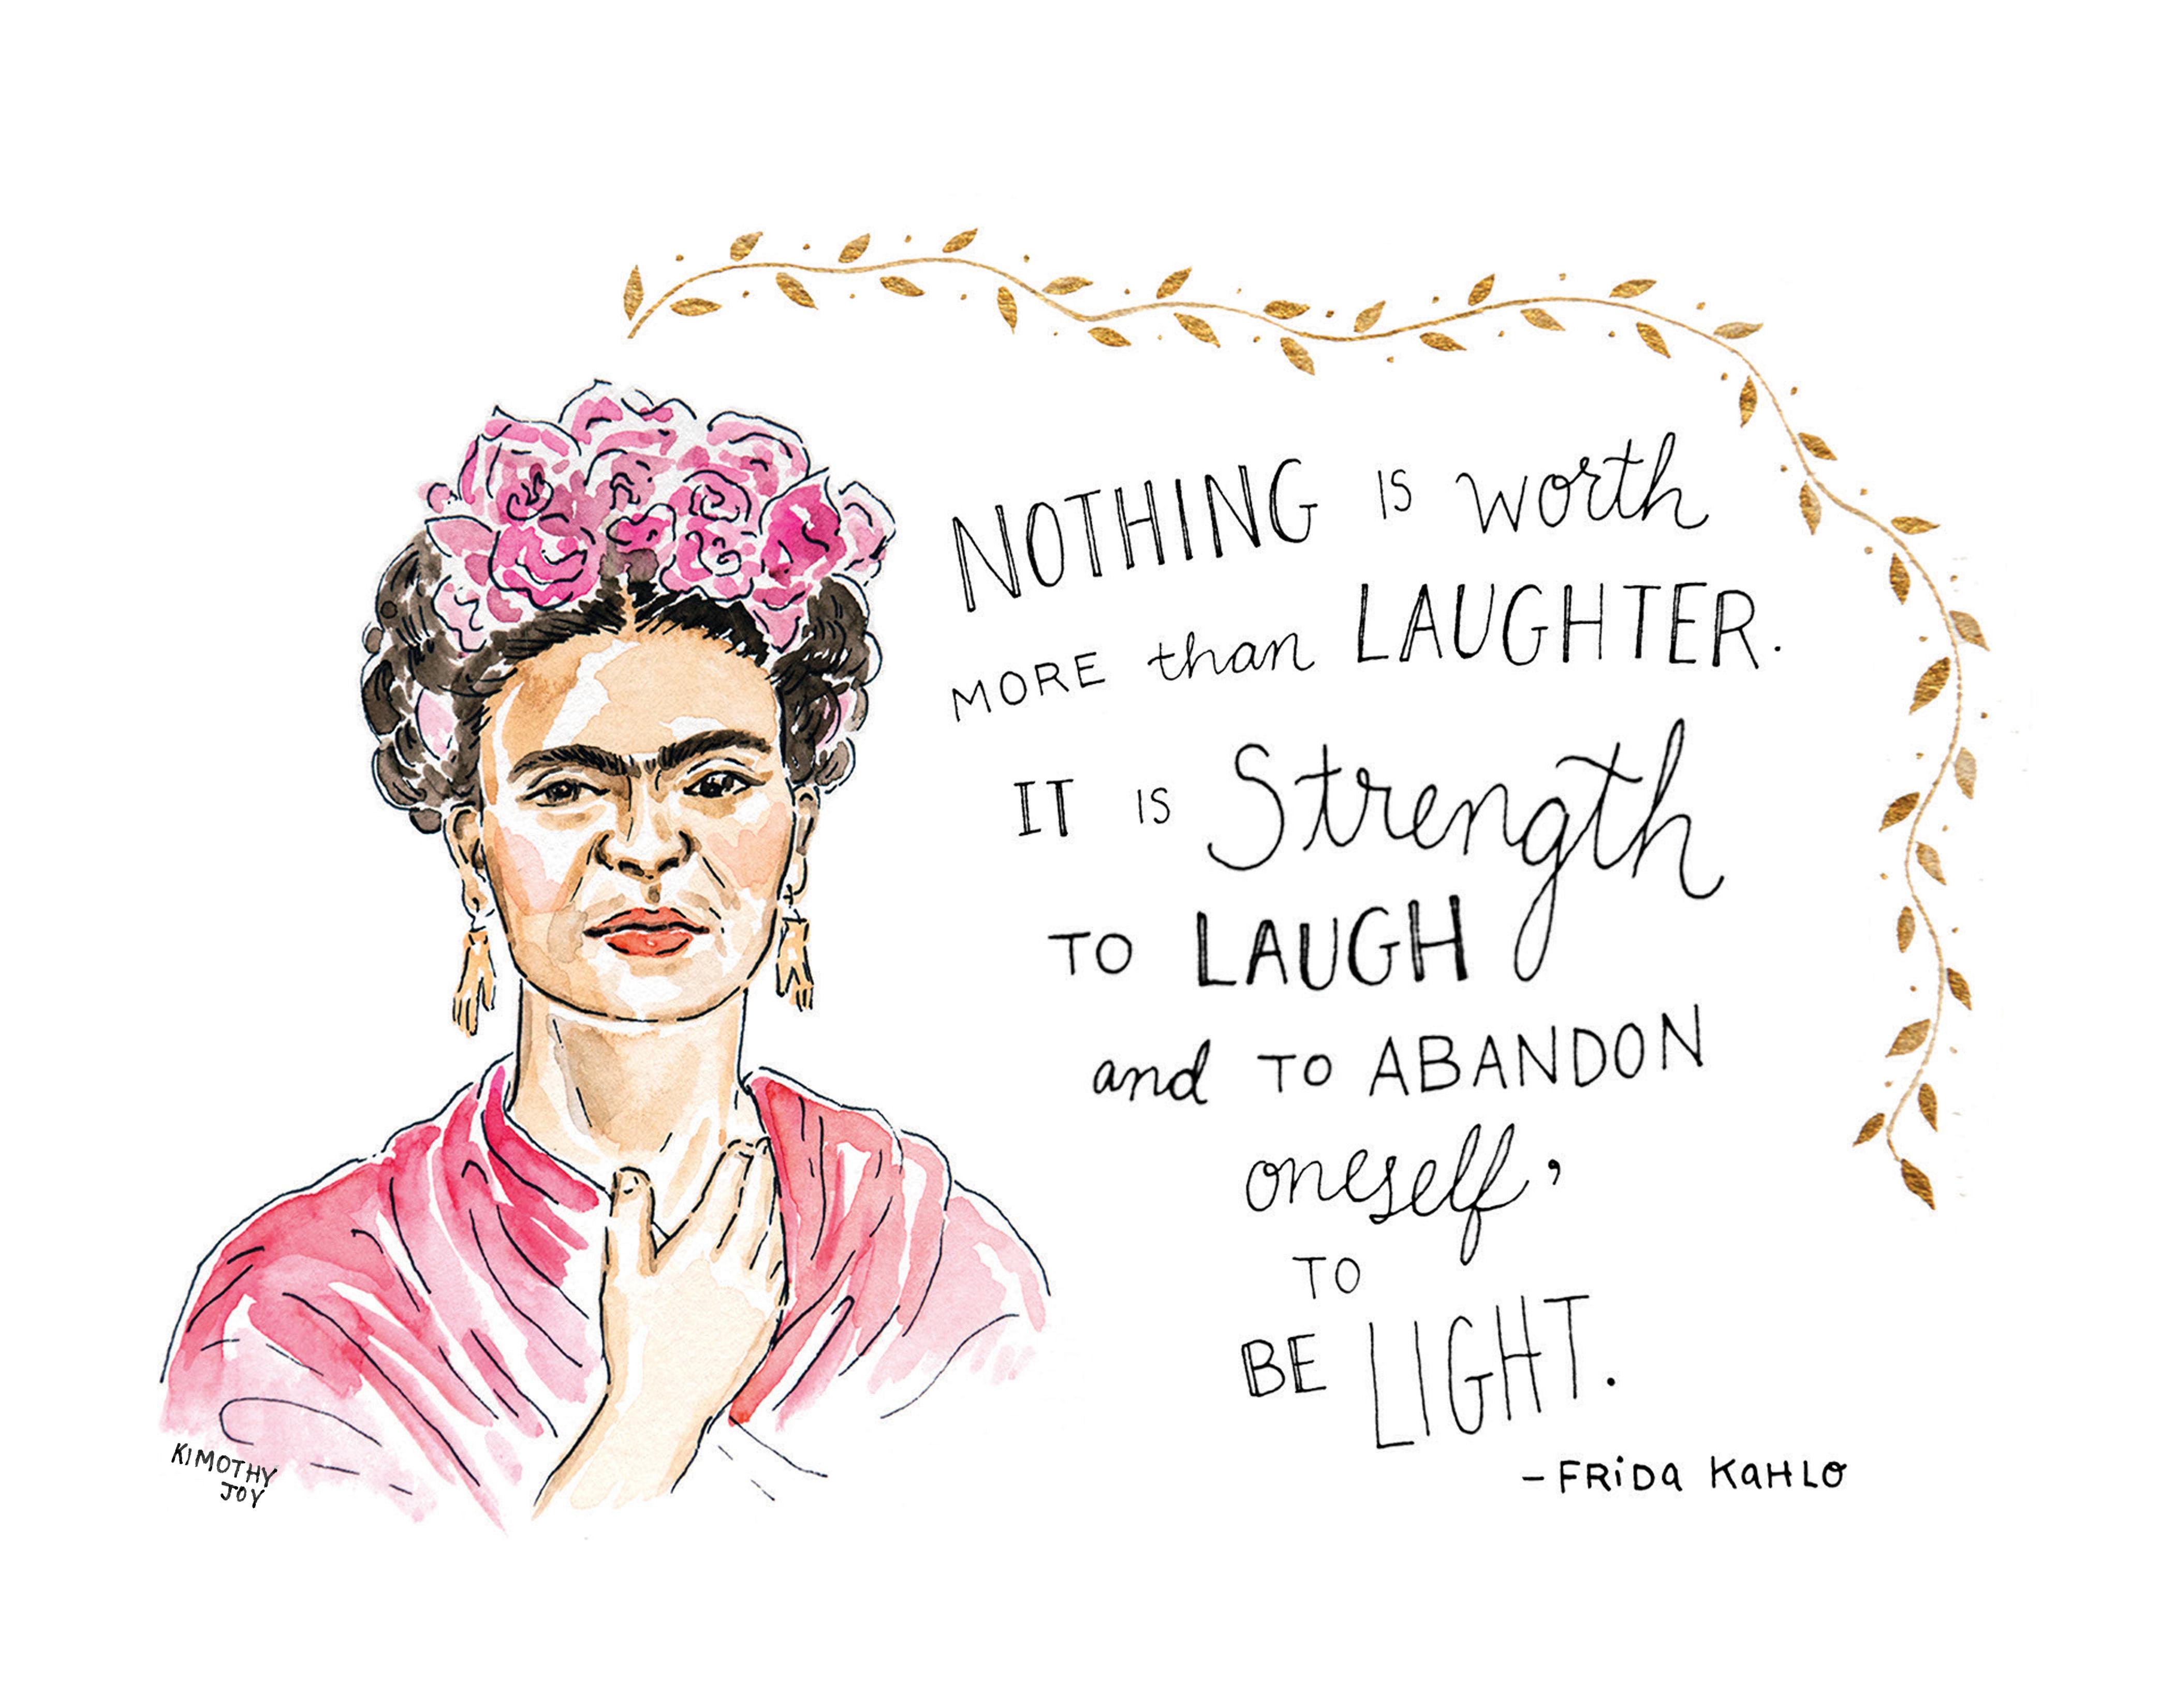 NOTHING IS worth
MORE than LAUGHTER.
IT IS Strength
TO LAUGH
and TO ABANDON
oneself,
TO
BE LIGHT.
–FRiDa KaHLO
KIMOTHY
JOY